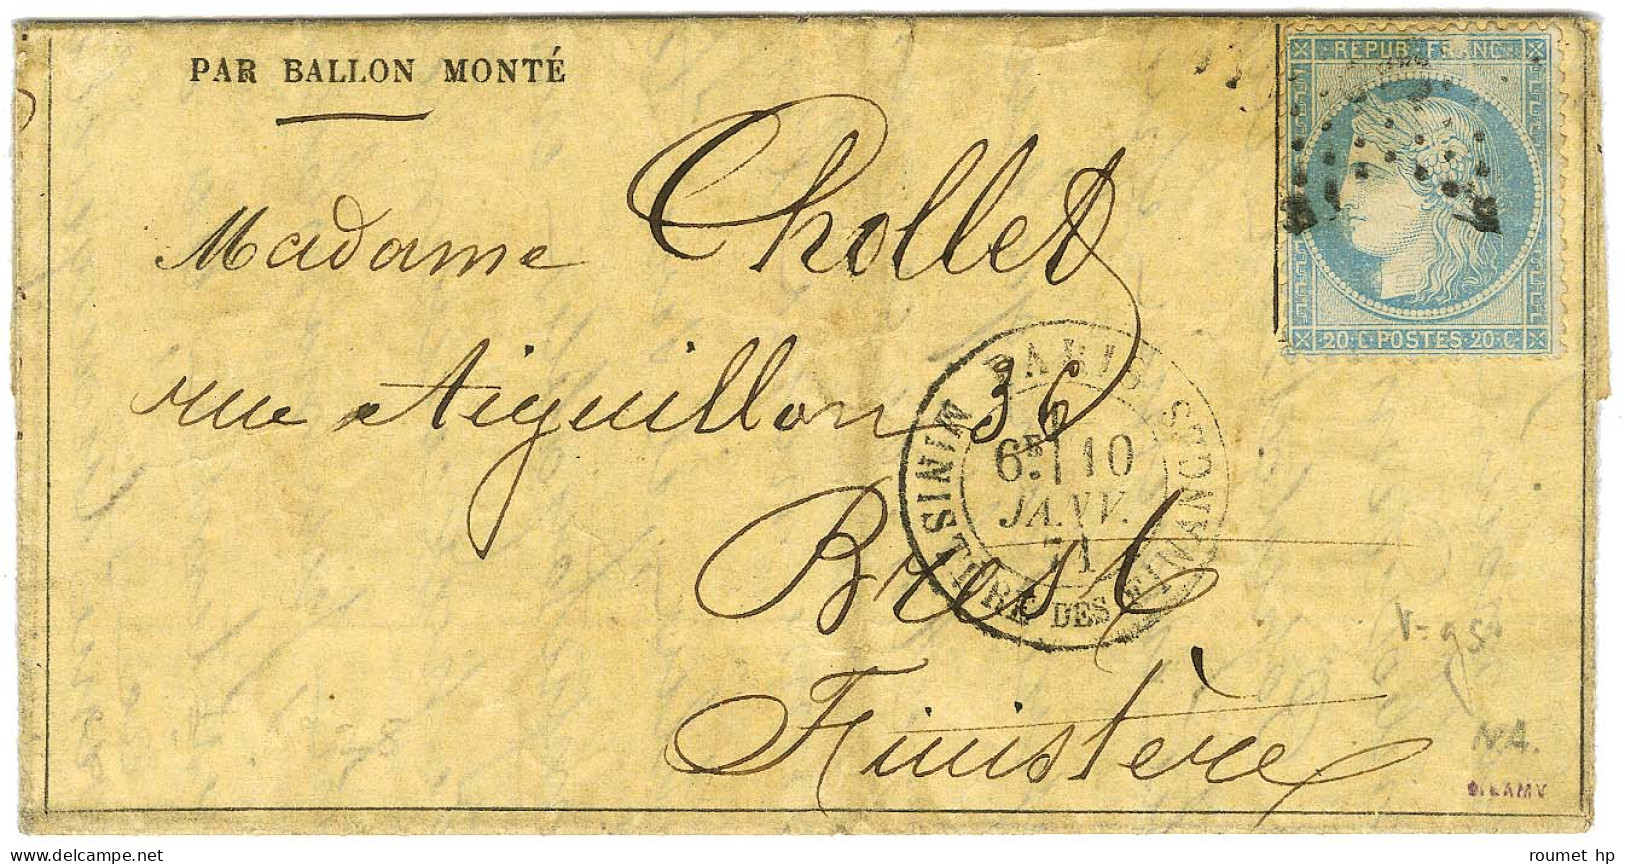 PAR BALLON MONTÉ
REPUB. FRANC.
20 C POSTES 20 C
Madame Chollet
rue Aiguillon 36
Brest
Finistère
PARIS
MINISTÈRE DES FINANCES
6E 10
JANV.
71
N.A.
roumet hp